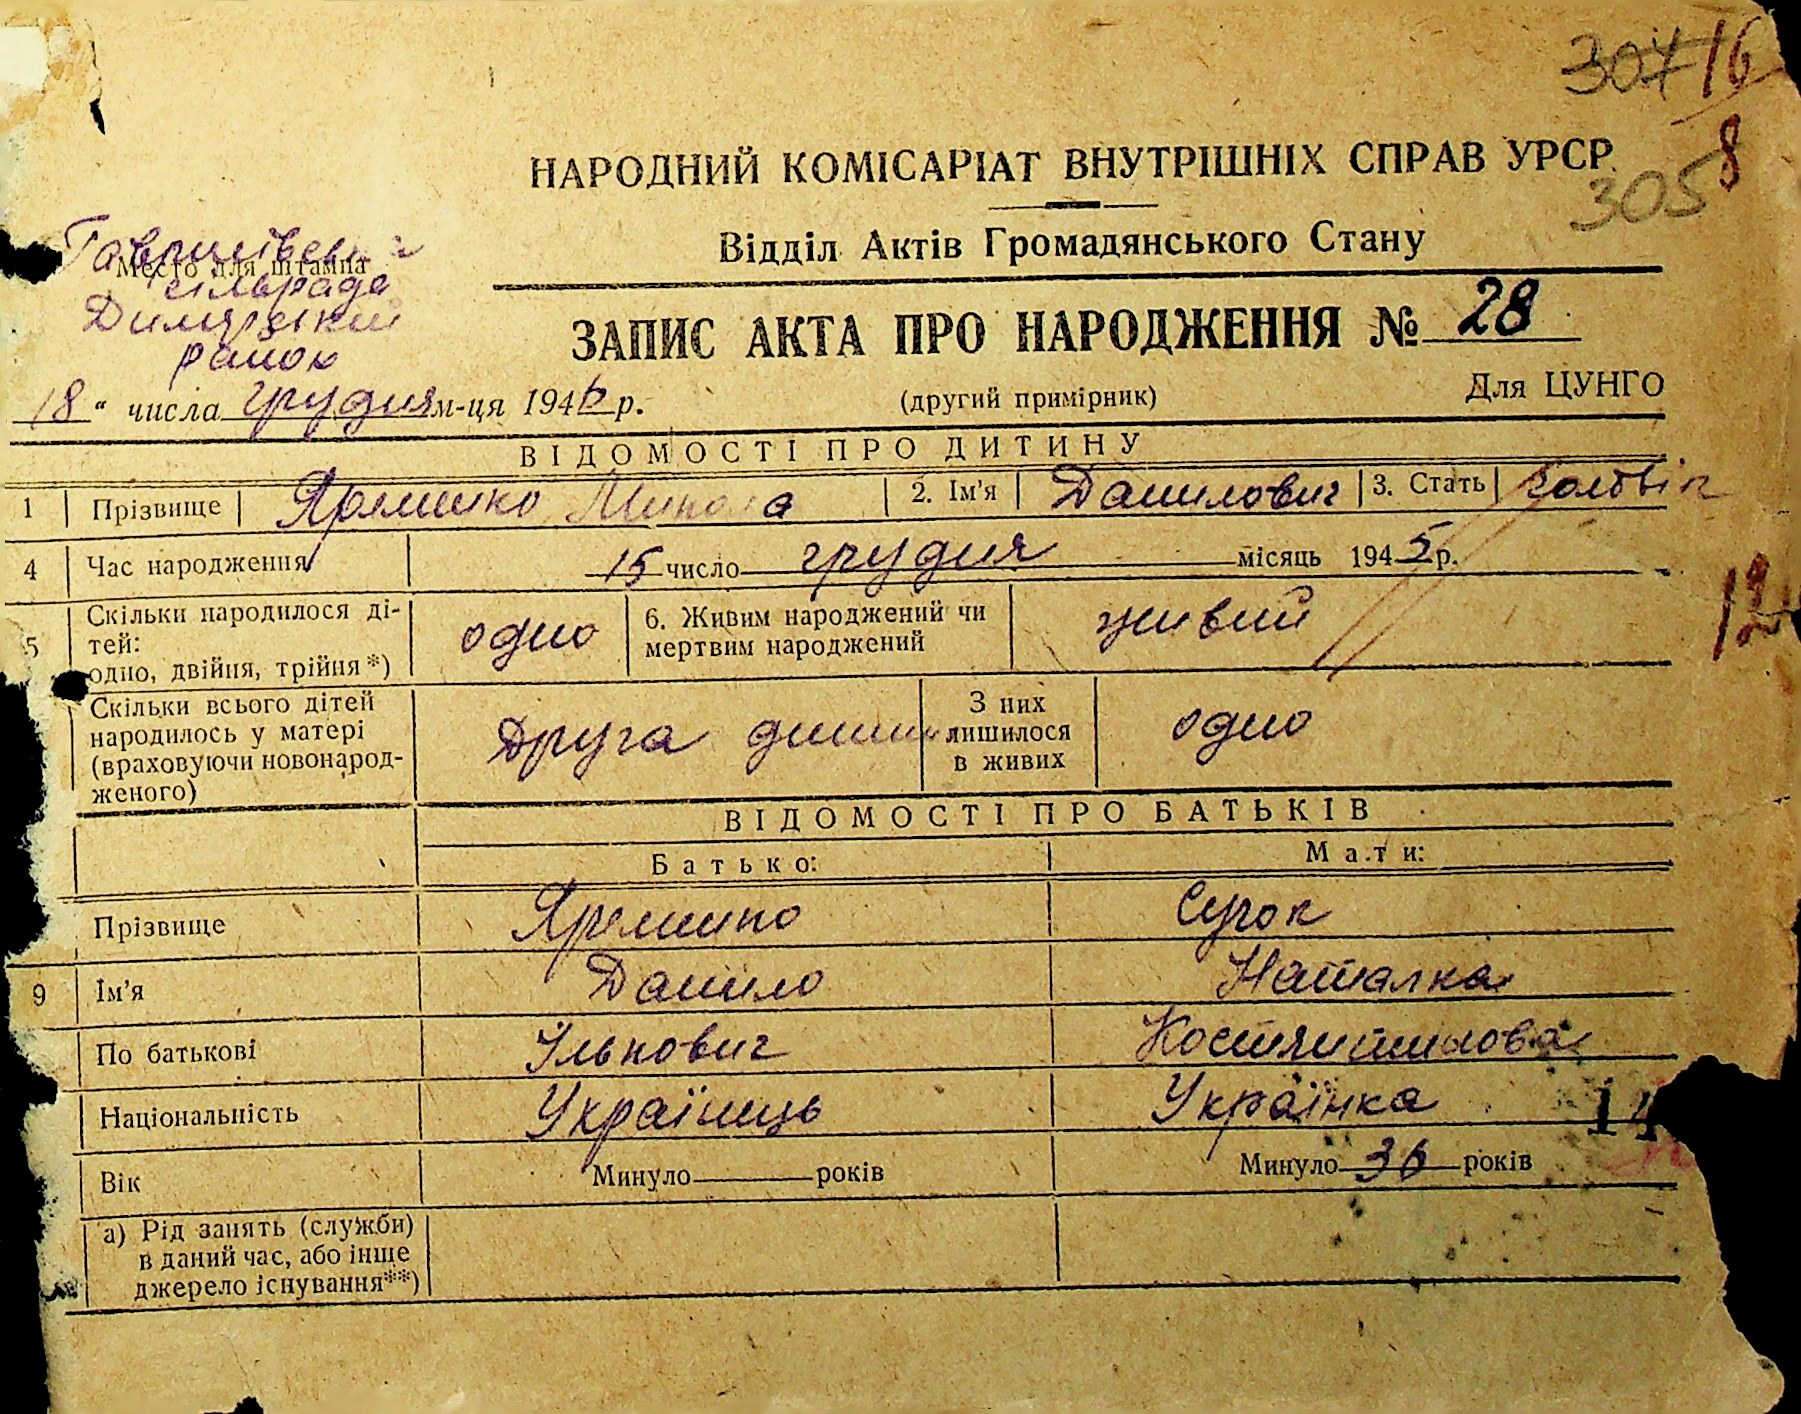 307 16
8
305
НАРОДНИЙ КОМІСАРІАТ ВНУТРІШНІХ СПРАВ УРСР
Відділ Актів Громадянського Стану
Место для штампа
сільрада
Димерський
район
ЗАПИС АКТА ПРО НАРОДЖЕННЯ № 28
18 “ числа грудня м-ця 1946 р.
(другий примірник)
Для ЦУНГО
ВІДОМОСТІ ПРО ДИТИНУ
1 Прізвище Яремико Микола 2. Ім'я Данилович 3. Стать
4 Час народження 15 число грудня місяць 1945 р.
5 Скільки народилося ді-
тей:
одно, двійня, трійня*)
одно
6. Живим народжений чи
мертвим народжений
живий
12
Скільки всього дітей
народилось у матері
(враховуючи новонарод-
женого)
Друга
З них
лишилося
в живих
одно
ВІДОМОСТІ ПРО БАТЬКІВ
Батько: Мати:
Прізвище Яремико Сучок
9 Ім'я Данило Наталка
По батькові Ількович
Національність Українець Українка
14
Вік Минуло років Минуло 36 років
а) Рід занять (служби)
в даний час, або інше
джерело існування**)